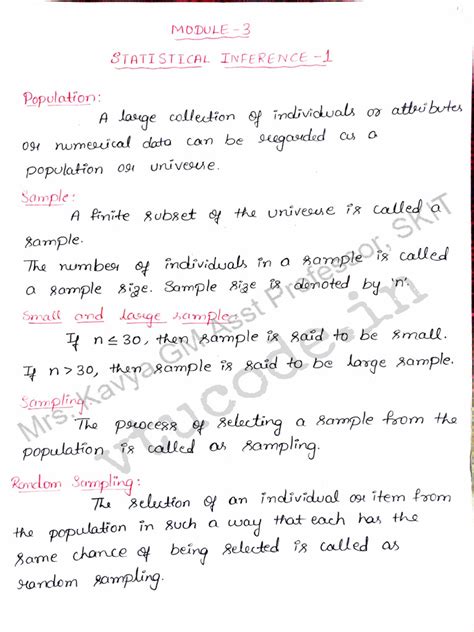 MODULE-3
STATISTICAL INFERENCE-1
Population:
A large collection of individuals or attributes
or numerical data can be regarded as a
population or universe.
Sample:
A finite subset of the universe is called a
sample.
The number of individuals in a sample is called
a sample size. Sample size is denoted by 'n'.
Small and large sample:
If n ≤ 30, then sample is said to be small.
If n > 30, then sample is said to be large sample.
Sampling:
The process of selecting a sample from the
population is called as sampling.
Random Sampling:
The selection of an individual or item from
the population in such a way that each has the
same chance of being selected is called as
random sampling.
Mrs. Kavya GM Asst Professor, SKIT
vtucode.in